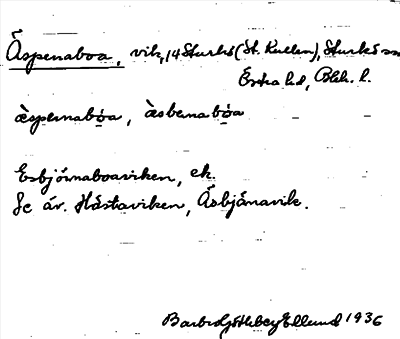 Äspenaboa, vik, 14 Sturkö (St. Kullen), Sturkö sn
Östra hd, Blek. l.
äspernabòa, àsbernabòa
Esbjörnaboaviken, ek.
Se äv. Hästaviken, Äsbjönavik.
Barbro Götheby Ellund 1936